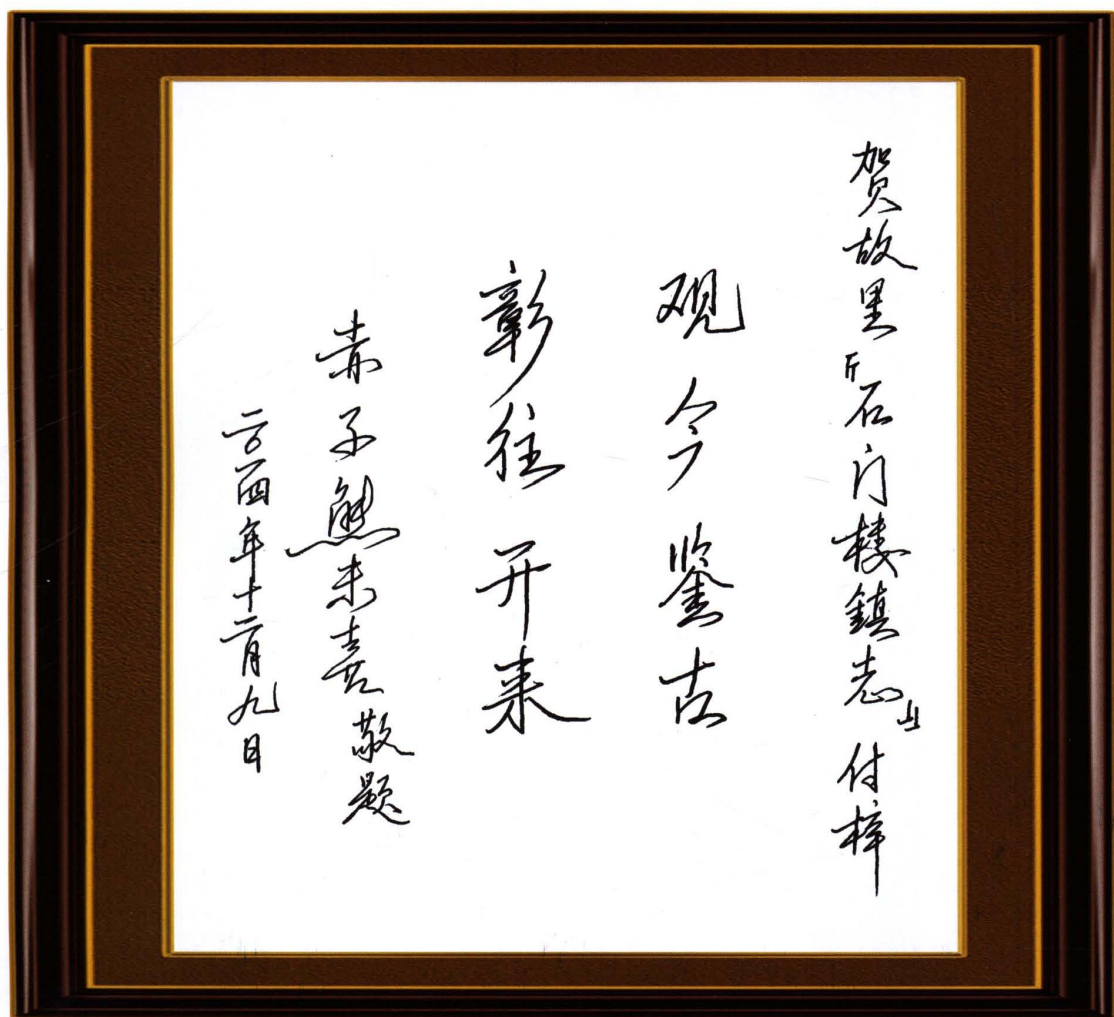 贺故里『石门楼鎮志』付梓
观今鉴古
彰往开来
赤子熊喜敬题
二〇一四年十二月九日